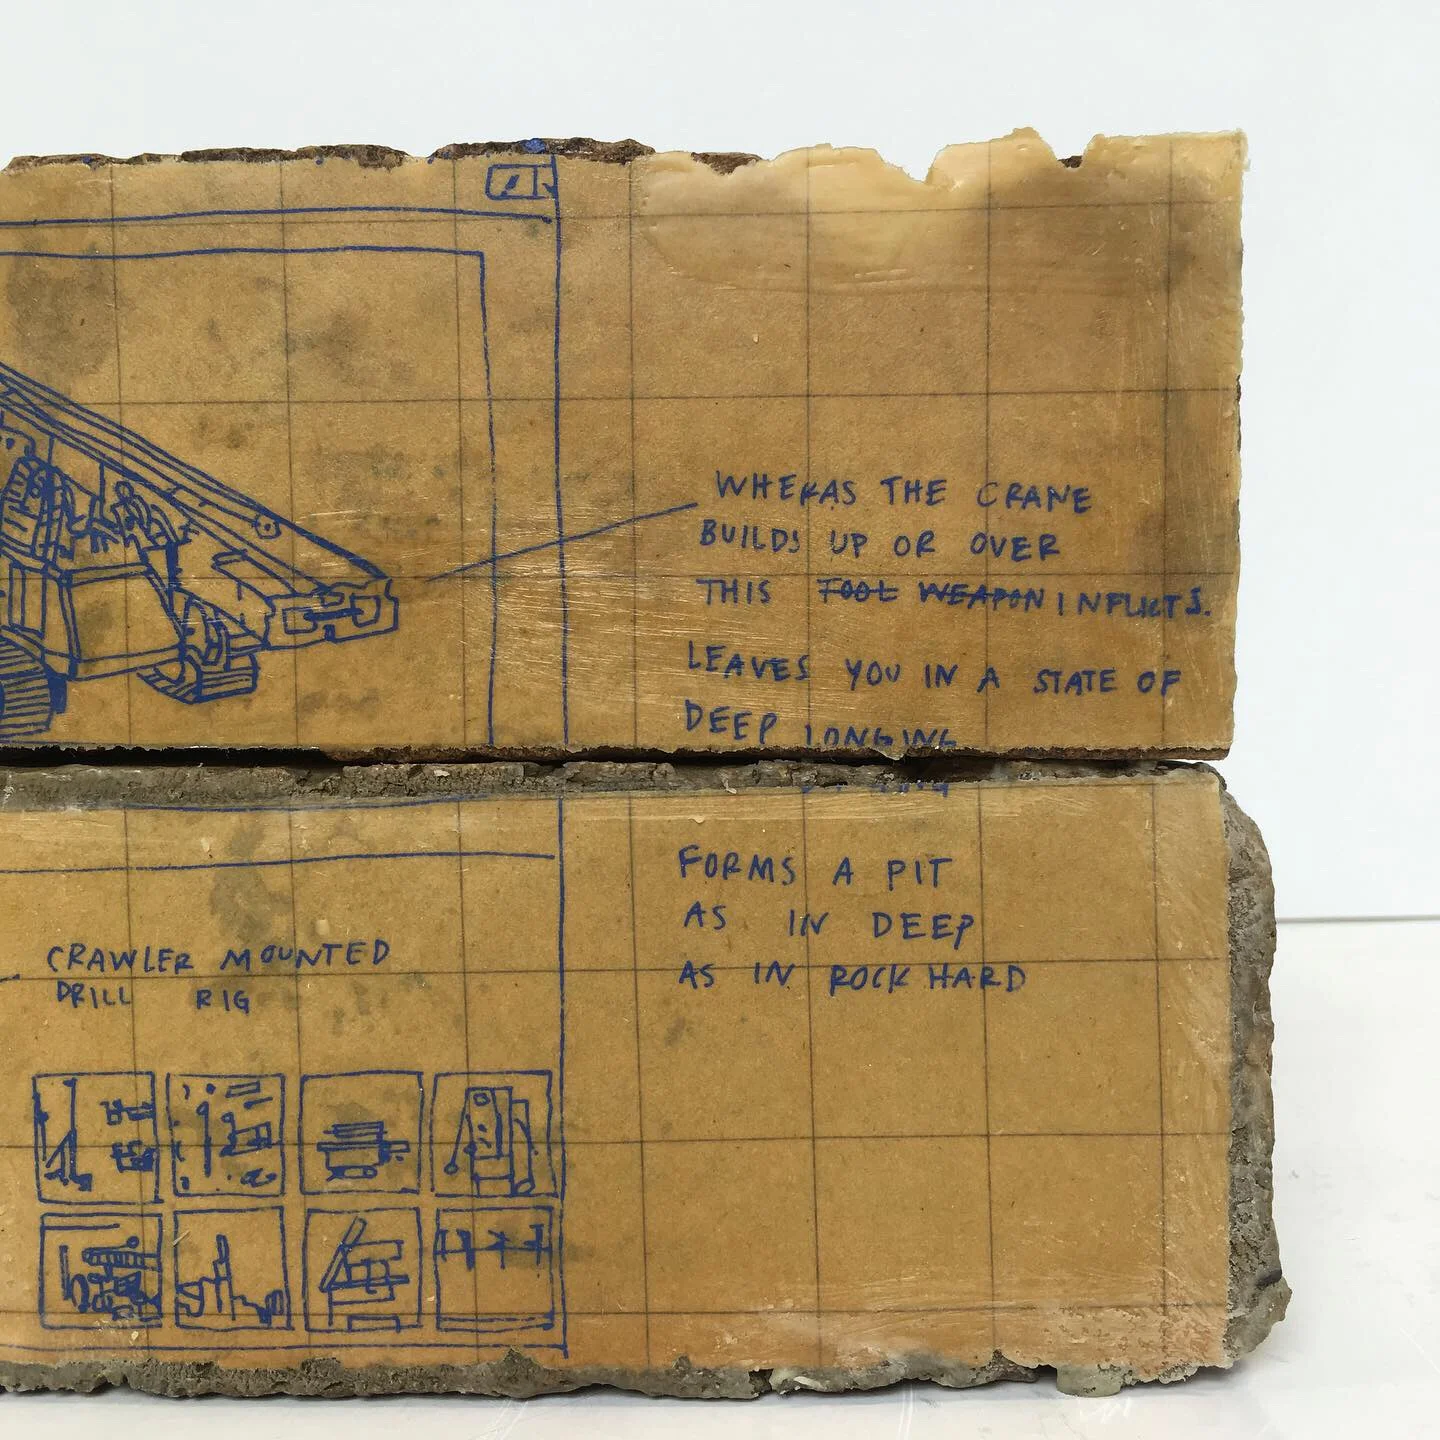 WHERAS THE CRANE
BUILDS UP OR OVER
THIS TOOL WEAPON INFLICTS.
LEAVES YOU IN A STATE OF
DEEP LONGING
FORMS A PIT
AS IN DEEP
AS IN ROCK HARD
CRAWLER MOUNTED
DRILL RIG